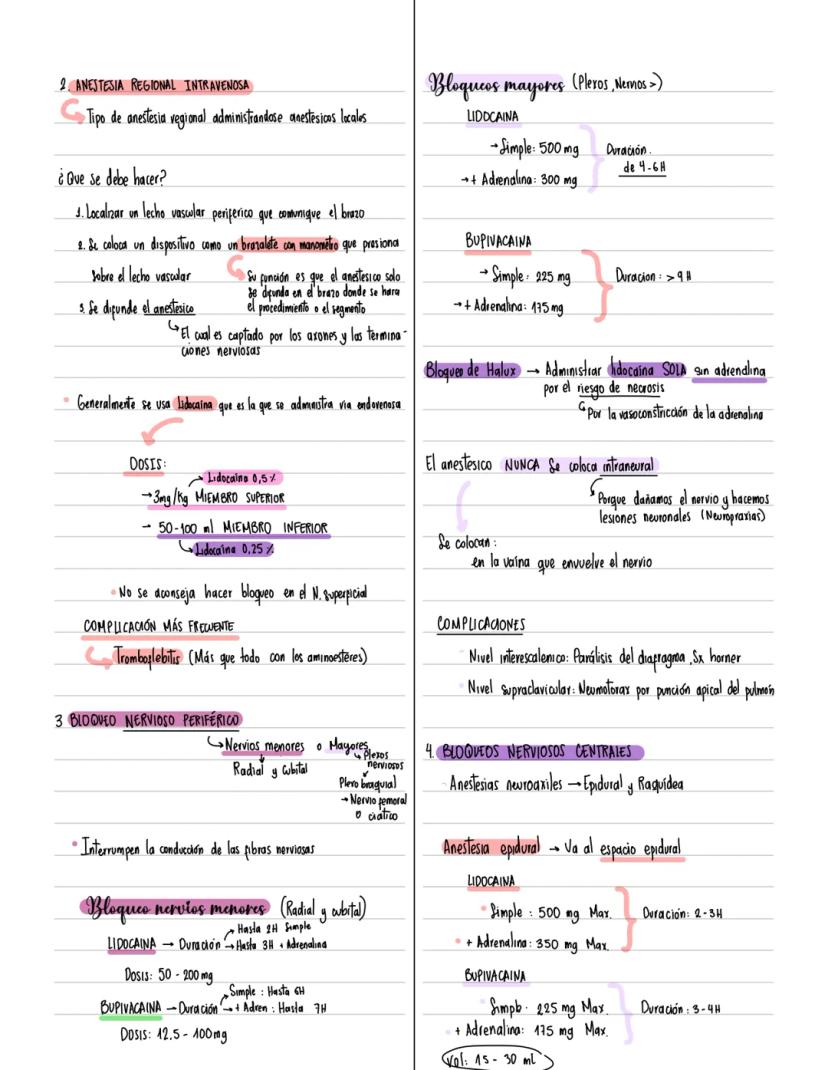 2. ANESTESIA REGIONAL INTRAVENOSA
Tipo de anestesia regional administrandose anestesicos locales
¿Que se debe hacer?
1. Localizar un lecho vascular periferico que comunique el brazo
2. Se coloca un dispositivo como un brazalete con manometro que presiona
sobre el lecho vascular
Su función es que el anestesico solo
se difunda en el brazo donde se hara
el procedimiento o el segmento
3. Se difunde el anestesico
El cual es captado por los axones y las termina-
ciones nerviosas
Generalmente se usa lidocaina que es la que se administra via endovenosa
DOSIS:
Lidocaina 0,5%
→3mg/kg MIEMBRO SUPERIOR
→ 50-100 ml MIEMBRO INFERIOR
Lidocaína 0,25 %
• No se aconseja hacer bloqueo en el N. superficial
COMPLICACIÓN MÁS FRECUENTE
Tromboflebitis (Más que todo con los aminoesteres)
3 BLOQUEO NERVIOSO PERIFÉRICO
Nervios menores o Mayores
Radial y cubital
Plexos
nerviosos
Plexo braquial
→ Nervio femoral
o ciatico
• Interrumpen la conducción de las fibras nerviosas
Bloqueo nervios menores (Radial y cubital)
Hasta 2H Simple
LIDOCAINA → Duración → Hasta 3H + Adrenalina
Dosis: 50 - 200 mg
Simple : Hasta 6H
BUPIVACAINA → Duración → + Adren : Hasta 7H
Dosis: 12.5 - 100mg
Bloqueos mayores (Plexos, Nervios >)
LIDOCAINA
→ Simple: 500 mg
→ + Adrenalina: 300 mg
Duración.
de 4-6H
BUPIVACAINA
→ Simple: 225 mg
→ + Adrenalina: 175 mg
Duracion: >9H
Bloqueo de Halux → Administrar lidocaina SOLA sin adrenalina
por el riesgo de necrosis
Por la vasoconstricción de la adrenalina
El anestesico NUNCA Se coloca intraneural
Porque dañamos el nervio y hacemos
lesiones neuronales (Neuropraxias)
Se colocan:
en la vaina que envuelve el nervio
COMPLICACIONES
Nivel interescalenico: Parálisis del diafragma, Sx horner
• Nivel supraclavicular: Neumotorax por punción apical del pulmón
4. BLOQUEOS NERVIOSOS CENTRALES
Anestesias neuroaxiles → Epidural y Raquídea
Anestesia epidural → Va al espacio epidural
LIDOCAINA
• Simple : 500 mg Max.
• + Adrenalina: 350 mg Max.
Duración: 2-3H
BUPIVACAINA
• Simple: 225 mg Max.
+ Adrenalina: 175 mg Max.
Duración: 3-4H
Vol: 15 - 30 ml